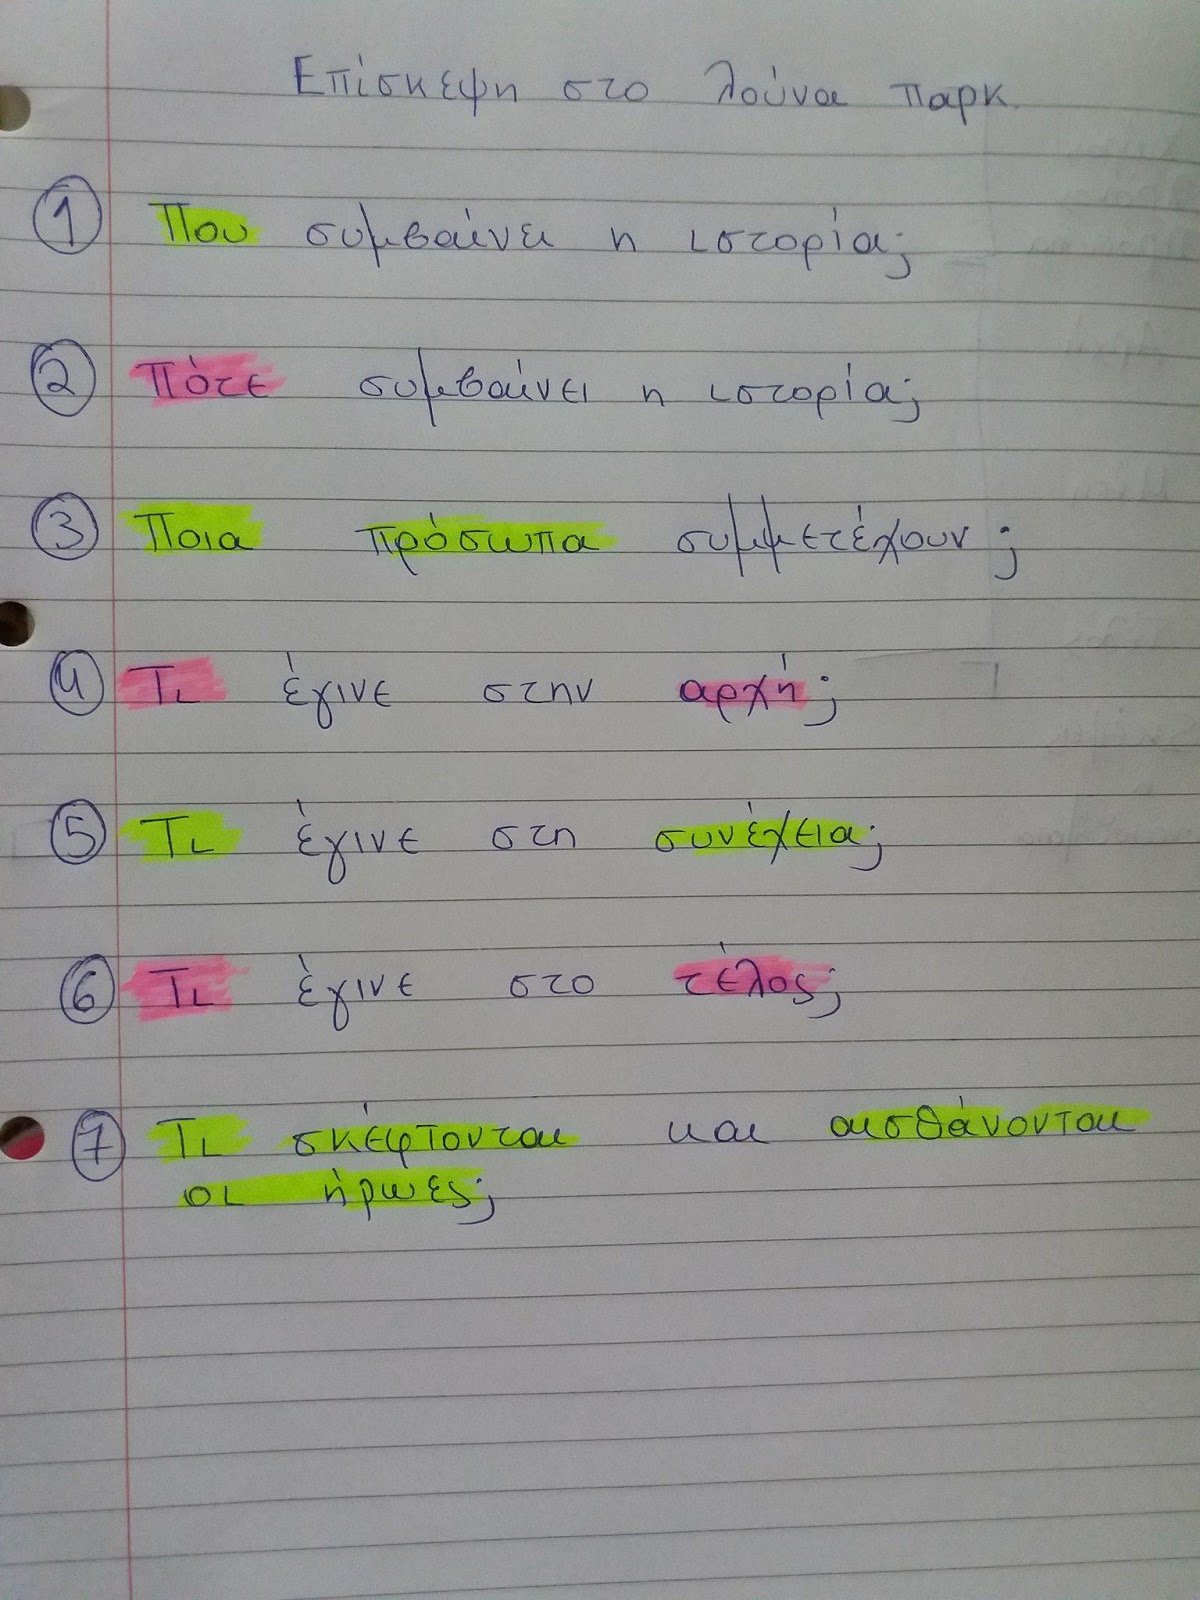 Επίσκεψη στο λούνα παρκ.
① Που συμβαίνει η ιστορία;
② Πότε συμβαίνει η ιστορία;
③ Ποια πρόσωπα συμμετέχουν;
④ Τι έγινε στην αρχή;
⑤ Τι έγινε στη συνέχεια;
⑥ Τι έγινε στο τέλος;
⑦ Τι σκέφτονται και αισθάνονται
οι ήρωες;